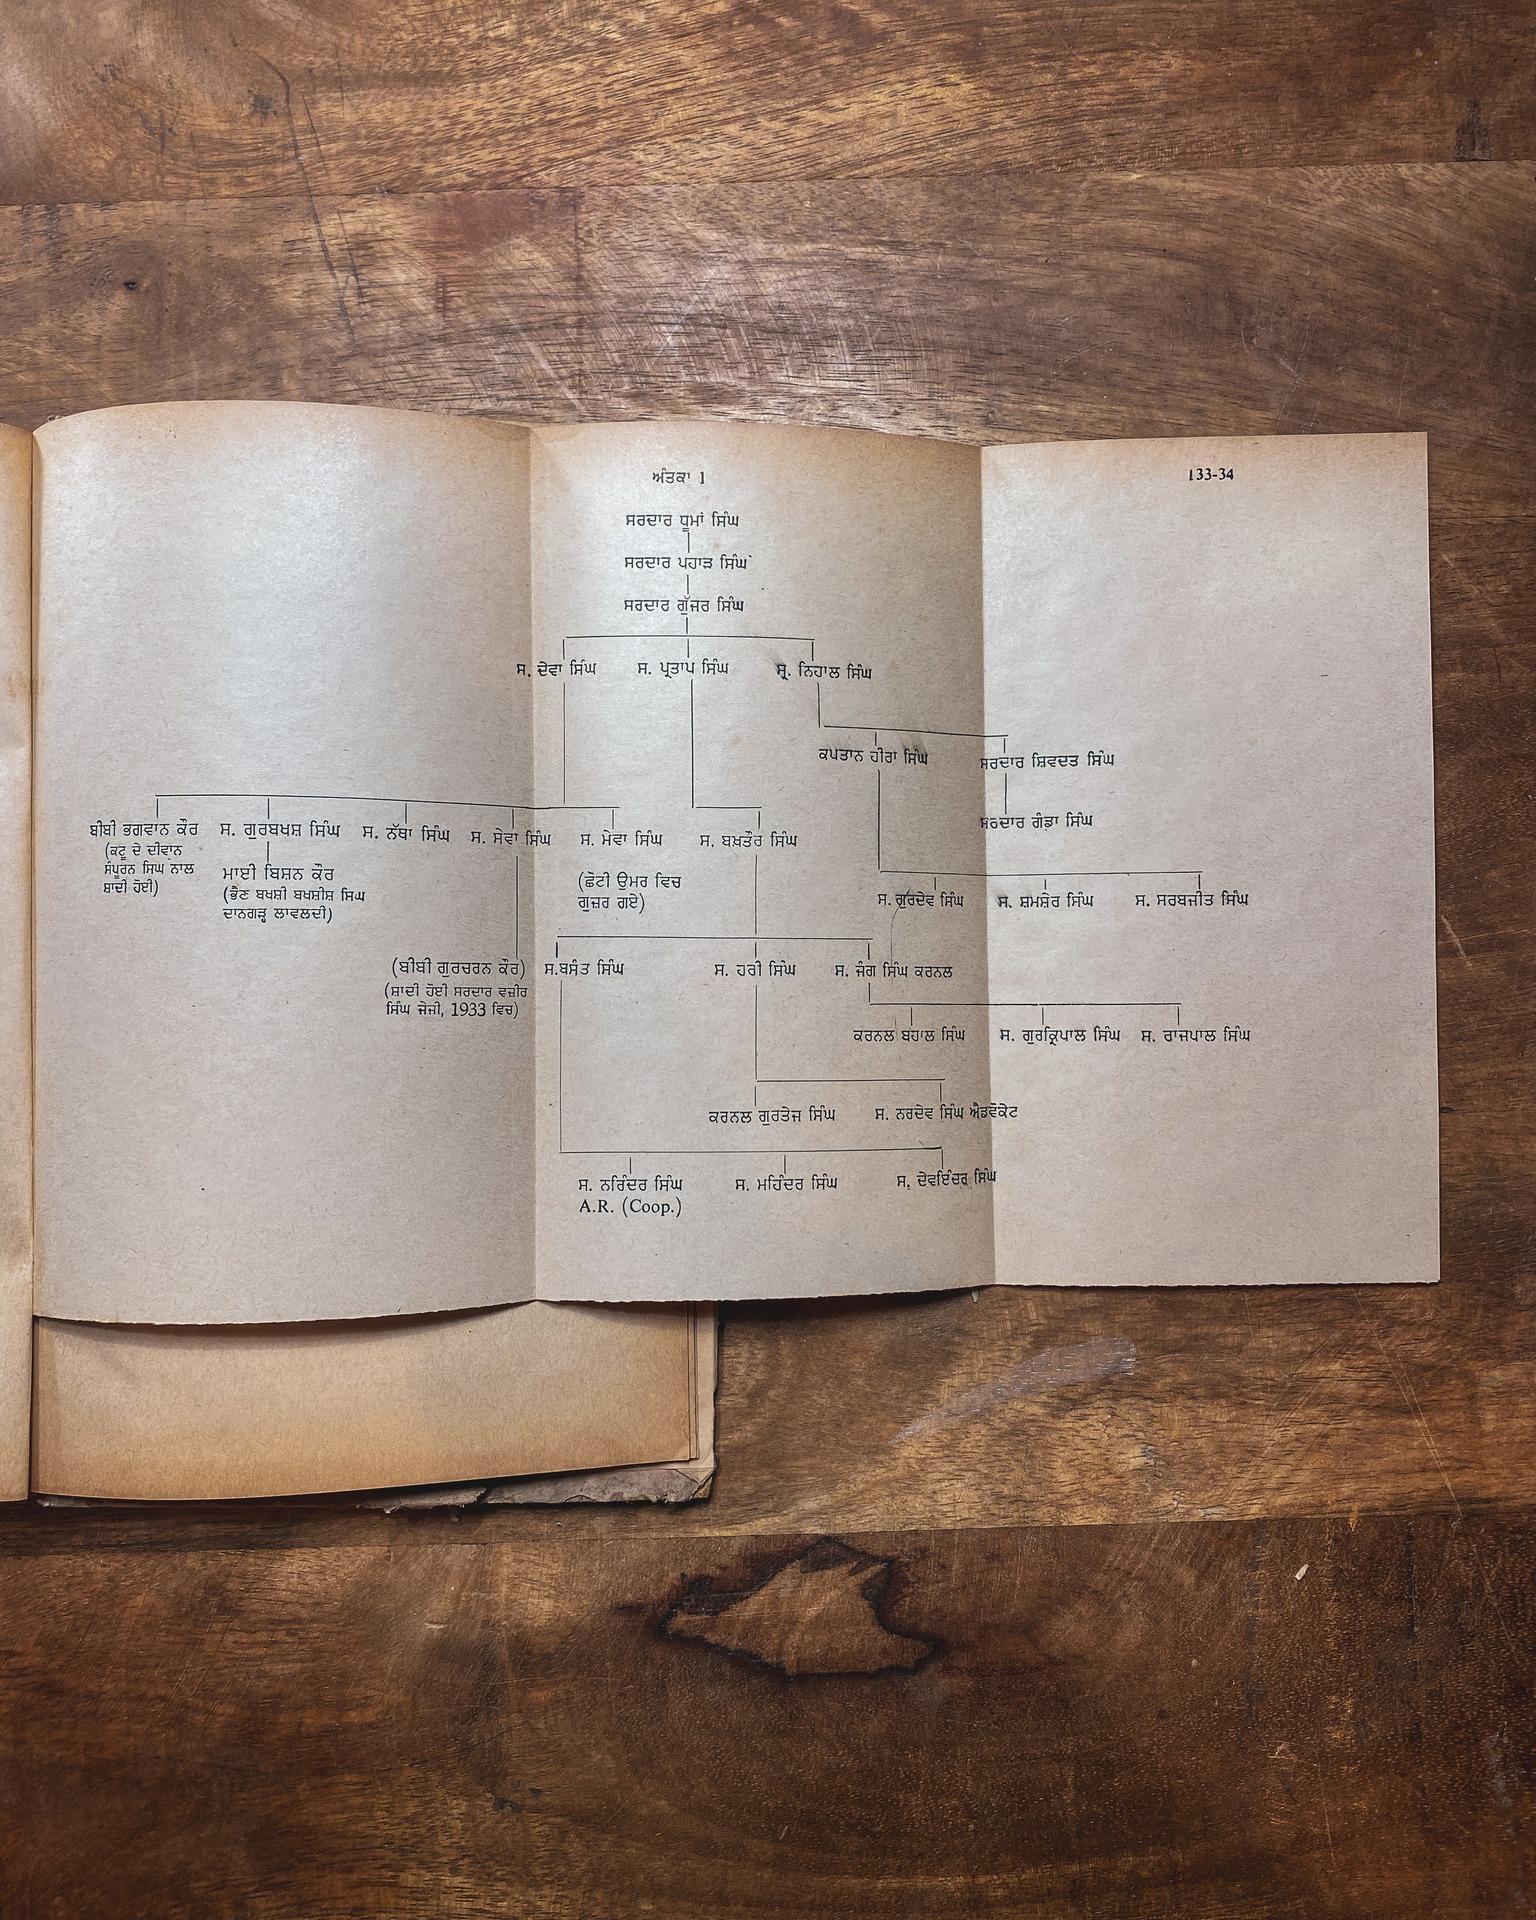 ਅੰਤਕਾ 1
133-34
ਸਰਦਾਰ ਧੂਮਾਂ ਸਿੰਘ
ਸਰਦਾਰ ਪਹਾੜ ਸਿੰਘ
ਸਰਦਾਰ ਗੁੱਜਰ ਸਿੰਘ
ਸ. ਦੇਵਾ ਸਿੰਘ ਸ. ਪ੍ਰਤਾਪ ਸਿੰਘ ਸ੍ਰ. ਨਿਹਾਲ ਸਿੰਘ
ਕਪਤਾਨ ਹੀਰਾ ਸਿੰਘ ਸਰਦਾਰ ਸ਼ਿਵਦਤ ਸਿੰਘ
ਸਰਦਾਰ ਗੰਡਾ ਸਿੰਘ
ਬੀਬੀ ਭਗਵਾਨ ਕੌਰ ਸ. ਗੁਰਬਖਸ਼ ਸਿੰਘ ਸ. ਨੱਥਾ ਸਿੰਘ ਸ. ਸੇਵਾ ਸਿੰਘ ਸ. ਮੇਵਾ ਸਿੰਘ ਸ. ਬਖ਼ਤੌਰ ਸਿੰਘ
(ਕਟੂ ਦੇ ਦੀਵਾਨ
ਸੰਪੂਰਨ ਸਿਘ ਨਾਲ
ਸ਼ਾਦੀ ਹੋਈ)
ਮਾਈ ਬਿਸ਼ਨ ਕੌਰ
(ਭੈਣ ਬਖਸ਼ੀ ਬਖਸ਼ੀਸ਼ ਸਿਘ
ਦਾਨਗੜ੍ਹ ਲਾਵਲਦੀ)
(ਛੋਟੀ ਉਮਰ ਵਿਚ
ਗੁਜ਼ਰ ਗਏ)
ਸ. ਗੁਰਦੇਵ ਸਿੰਘ ਸ. ਸ਼ਮਸ਼ੇਰ ਸਿੰਘ ਸ. ਸਰਬਜੀਤ ਸਿੰਘ
(ਬੀਬੀ ਗੁਰਚਰਨ ਕੌਰ) ਸ.ਬਸੰਤ ਸਿੰਘ ਸ. ਹਰੀ ਸਿੰਘ ਸ. ਜੰਗ ਸਿੰਘ ਕਰਨਲ
(ਸ਼ਾਦੀ ਹੋਈ ਸਰਦਾਰ ਵਜ਼ੀਰ
ਸਿੰਘ ਜੇਜੀ, 1933 ਵਿਚ)
ਕਰਨਲ ਬਹਾਲ ਸਿੰਘ ਸ. ਗੁਰਕ੍ਰਿਪਾਲ ਸਿੰਘ ਸ. ਰਾਜਪਾਲ ਸਿੰਘ
ਕਰਨਲ ਗੁਰਤੇਜ ਸਿੰਘ ਸ. ਨਰਦੇਵ ਸਿੰਘ ਐਡਵੋਕੇਟ
ਸ. ਨਰਿੰਦਰ ਸਿੰਘ ਸ. ਮਹਿੰਦਰ ਸਿੰਘ ਸ. ਦੇਵਇੰਦਰ ਸਿੰਘ
A.R. (Coop.)